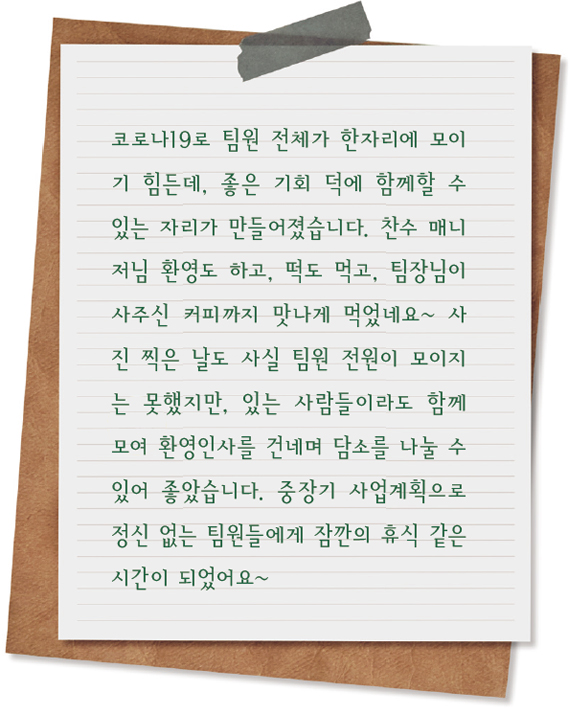 코로나19로 팀원 전체가 한자리에 모이
기 힘든데, 좋은 기회 덕에 함께할 수
있는 자리가 만들어졌습니다. 찬수 매니
저님 환영도 하고, 떡도 먹고, 팀장님이
사주신 커피까지 맛나게 먹었네요~ 사
진 찍은 날도 사실 팀원 전원이 모이지
는 못했지만, 있는 사람들이라도 함께
모여 환영인사를 건네며 담소를 나눌 수
있어 좋았습니다. 중장기 사업계획으로
정신 없는 팀원들에게 잠깐의 휴식 같은
시간이 되었어요~